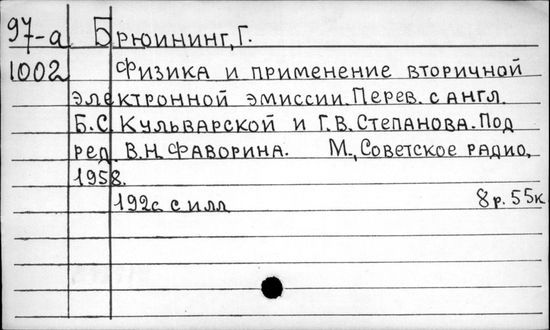 97-а Брюининг, Г.
1002 Физика и применение вторичной
электронной эмиссии. Перев. с англ.
Б.С. Кульварской и Г.В. Степанова. Под
ред. В.Н. Фаворина. М., Советское радио,
1958.
192с. с илл 8р. 55к